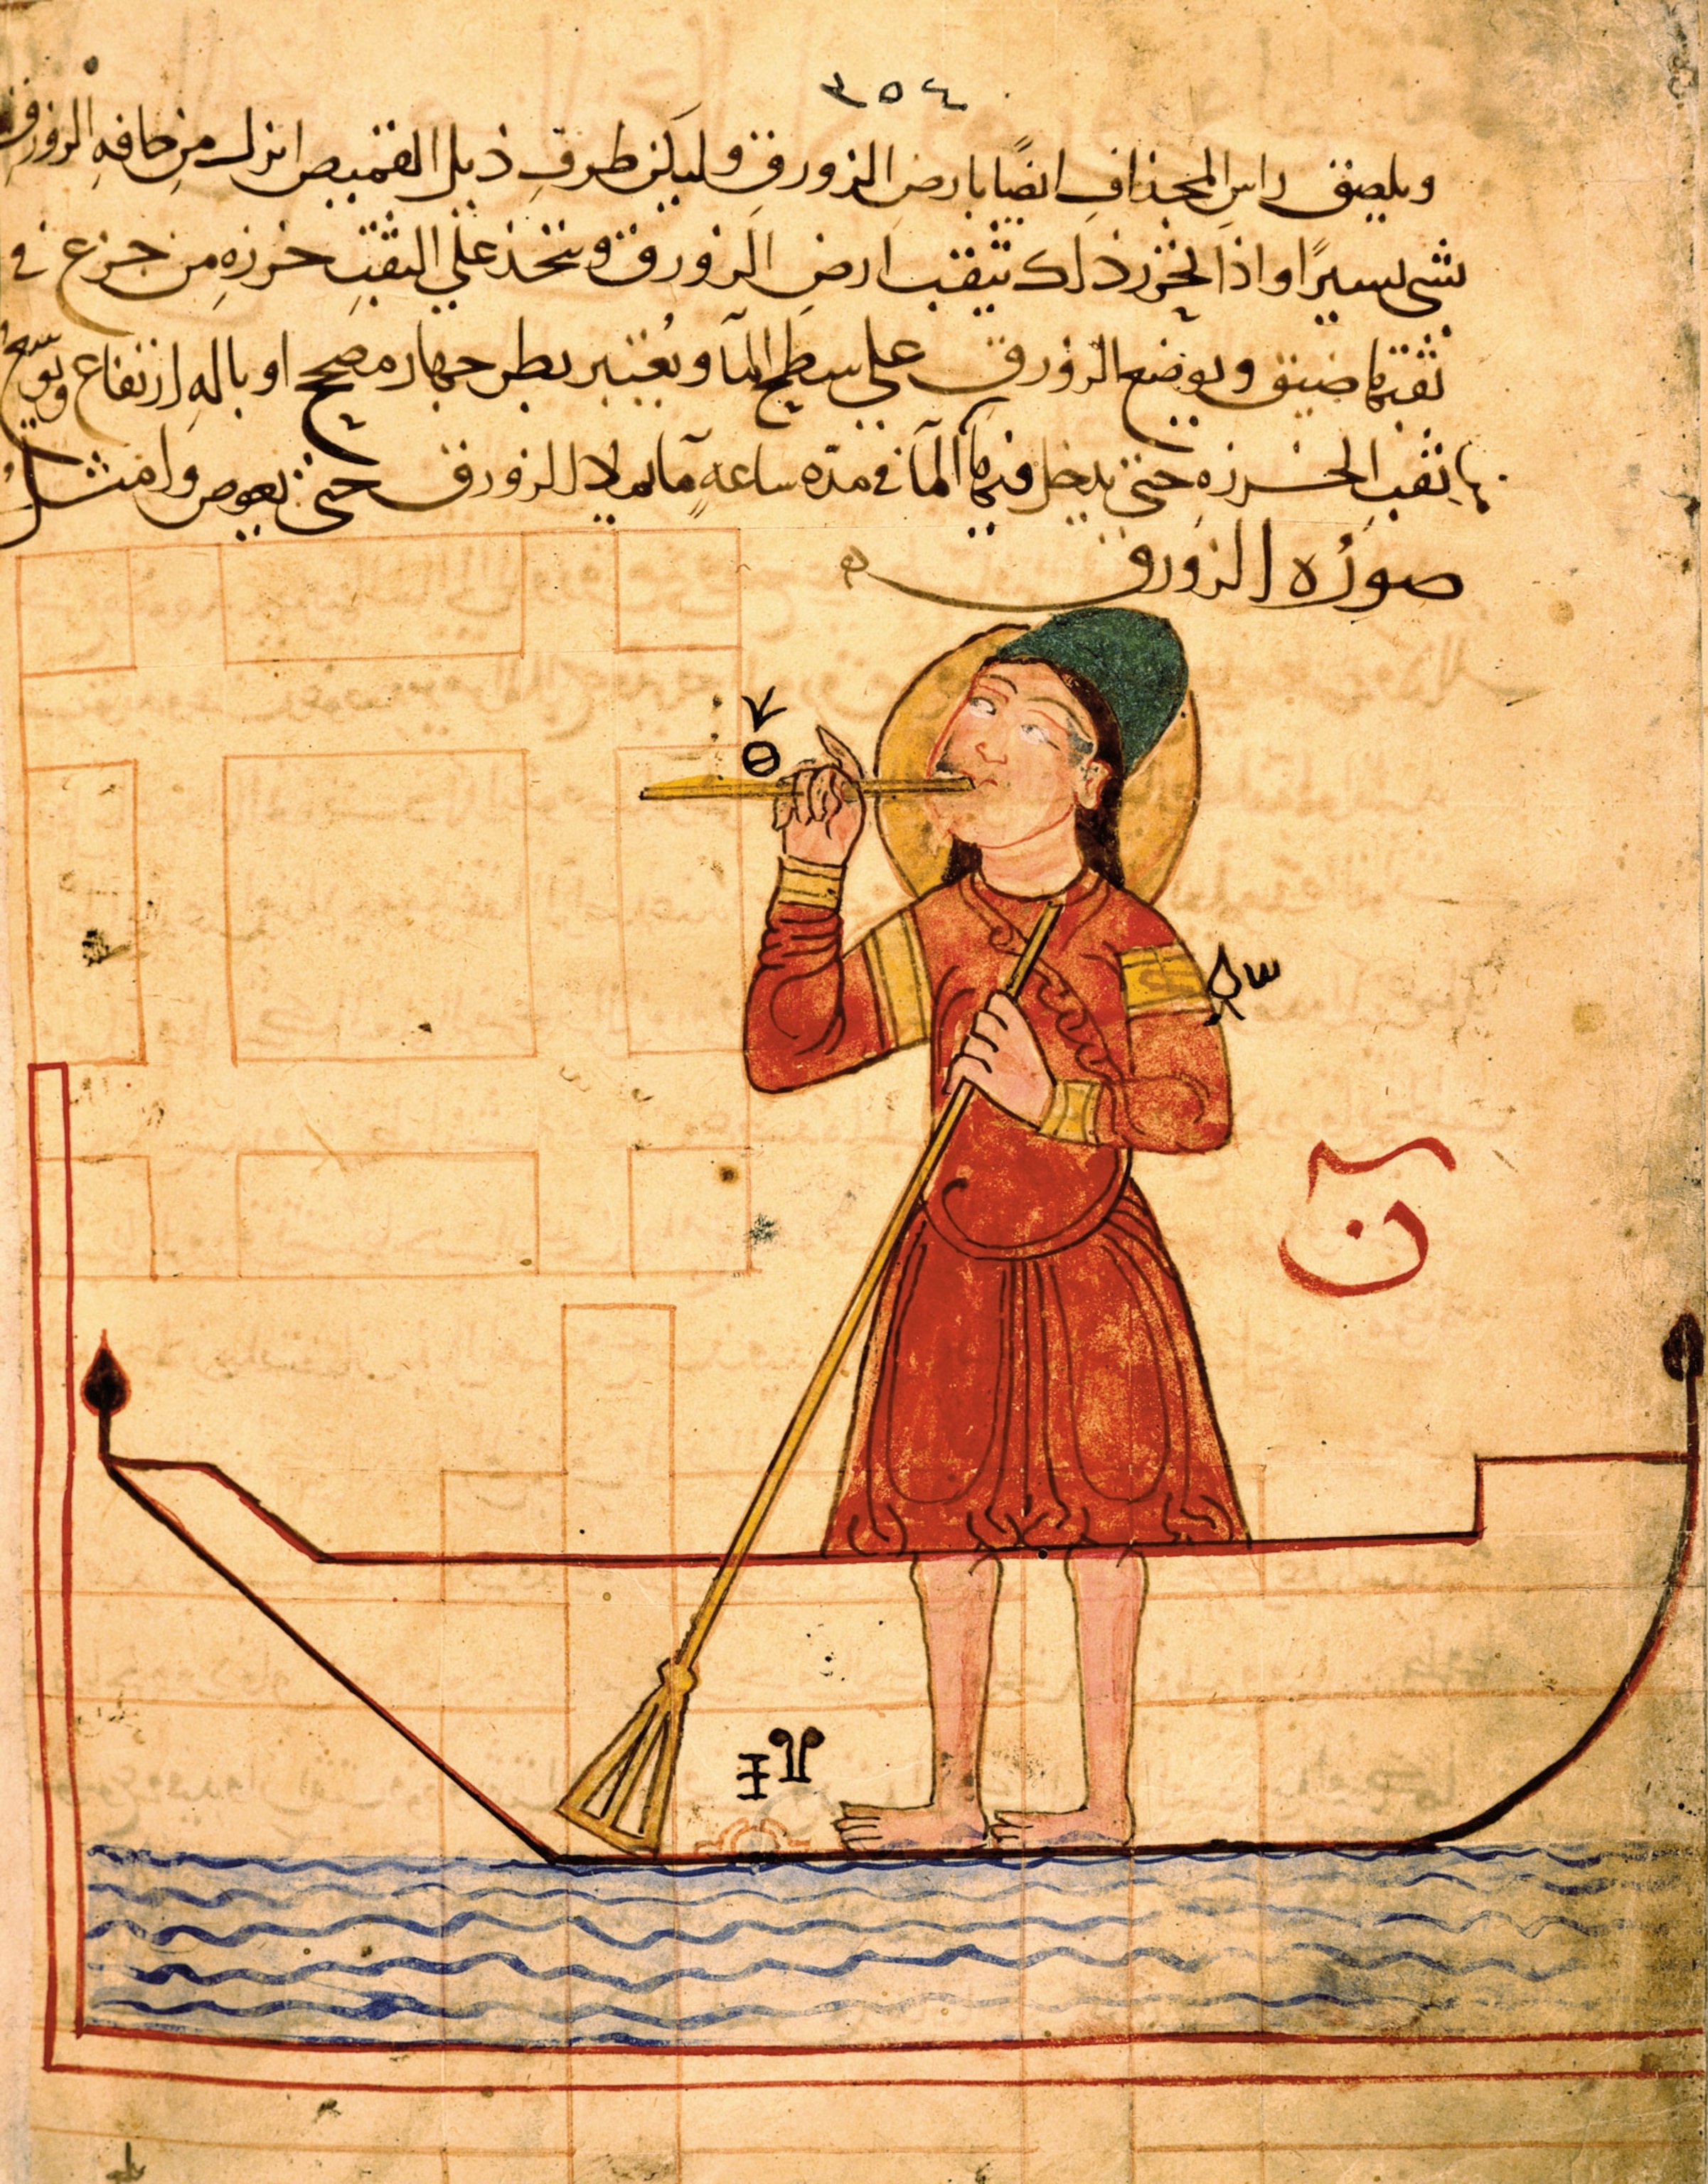 ٣٥٤
ويلصق راس المجذاف ايضًا بارض الزورق وليكن طرف ذيل القميص انزل من حافه الزورق
بشي يسيرًا واذا تحرر ذلك تثقب ارض الزورق ويتخذ على الثقب خرزه من جزع في
ثقبها ضيق ويوضع الزورق على سطح المآ ويعتبر بطرجهار مصحح او باله ارتفاع ويوسع
بها ثقب الخرزه حتى يدخل فيها المآ في مدّه ساعهٍ مآ يملا الزورق حتى يغوص وامثل
صوره الزورق